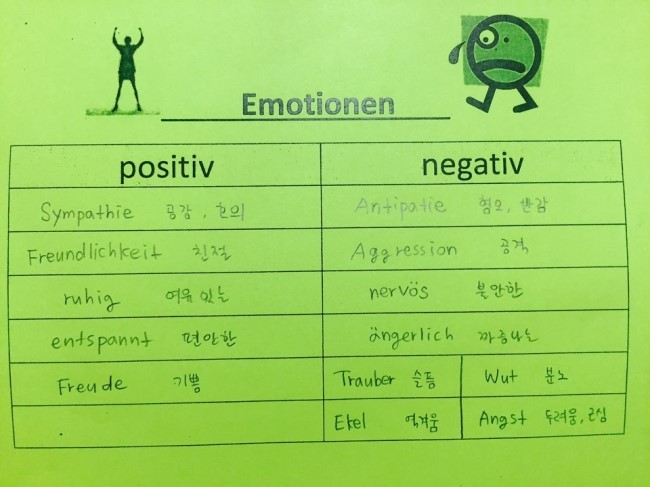 Emotionen
positiv negativ
Sympathie 공감, 호의 Antipatie 혐오, 반감
Freundlichkeit 친절 Aggression 공격
ruhig 여유 있는 nervös 불안한
entspannt 편안한 ängerlich 짜증나는
Freude 기쁨 Trauber 슬픔 Wut 분노
Ekel 역겨움 Angst 두려움, 근심